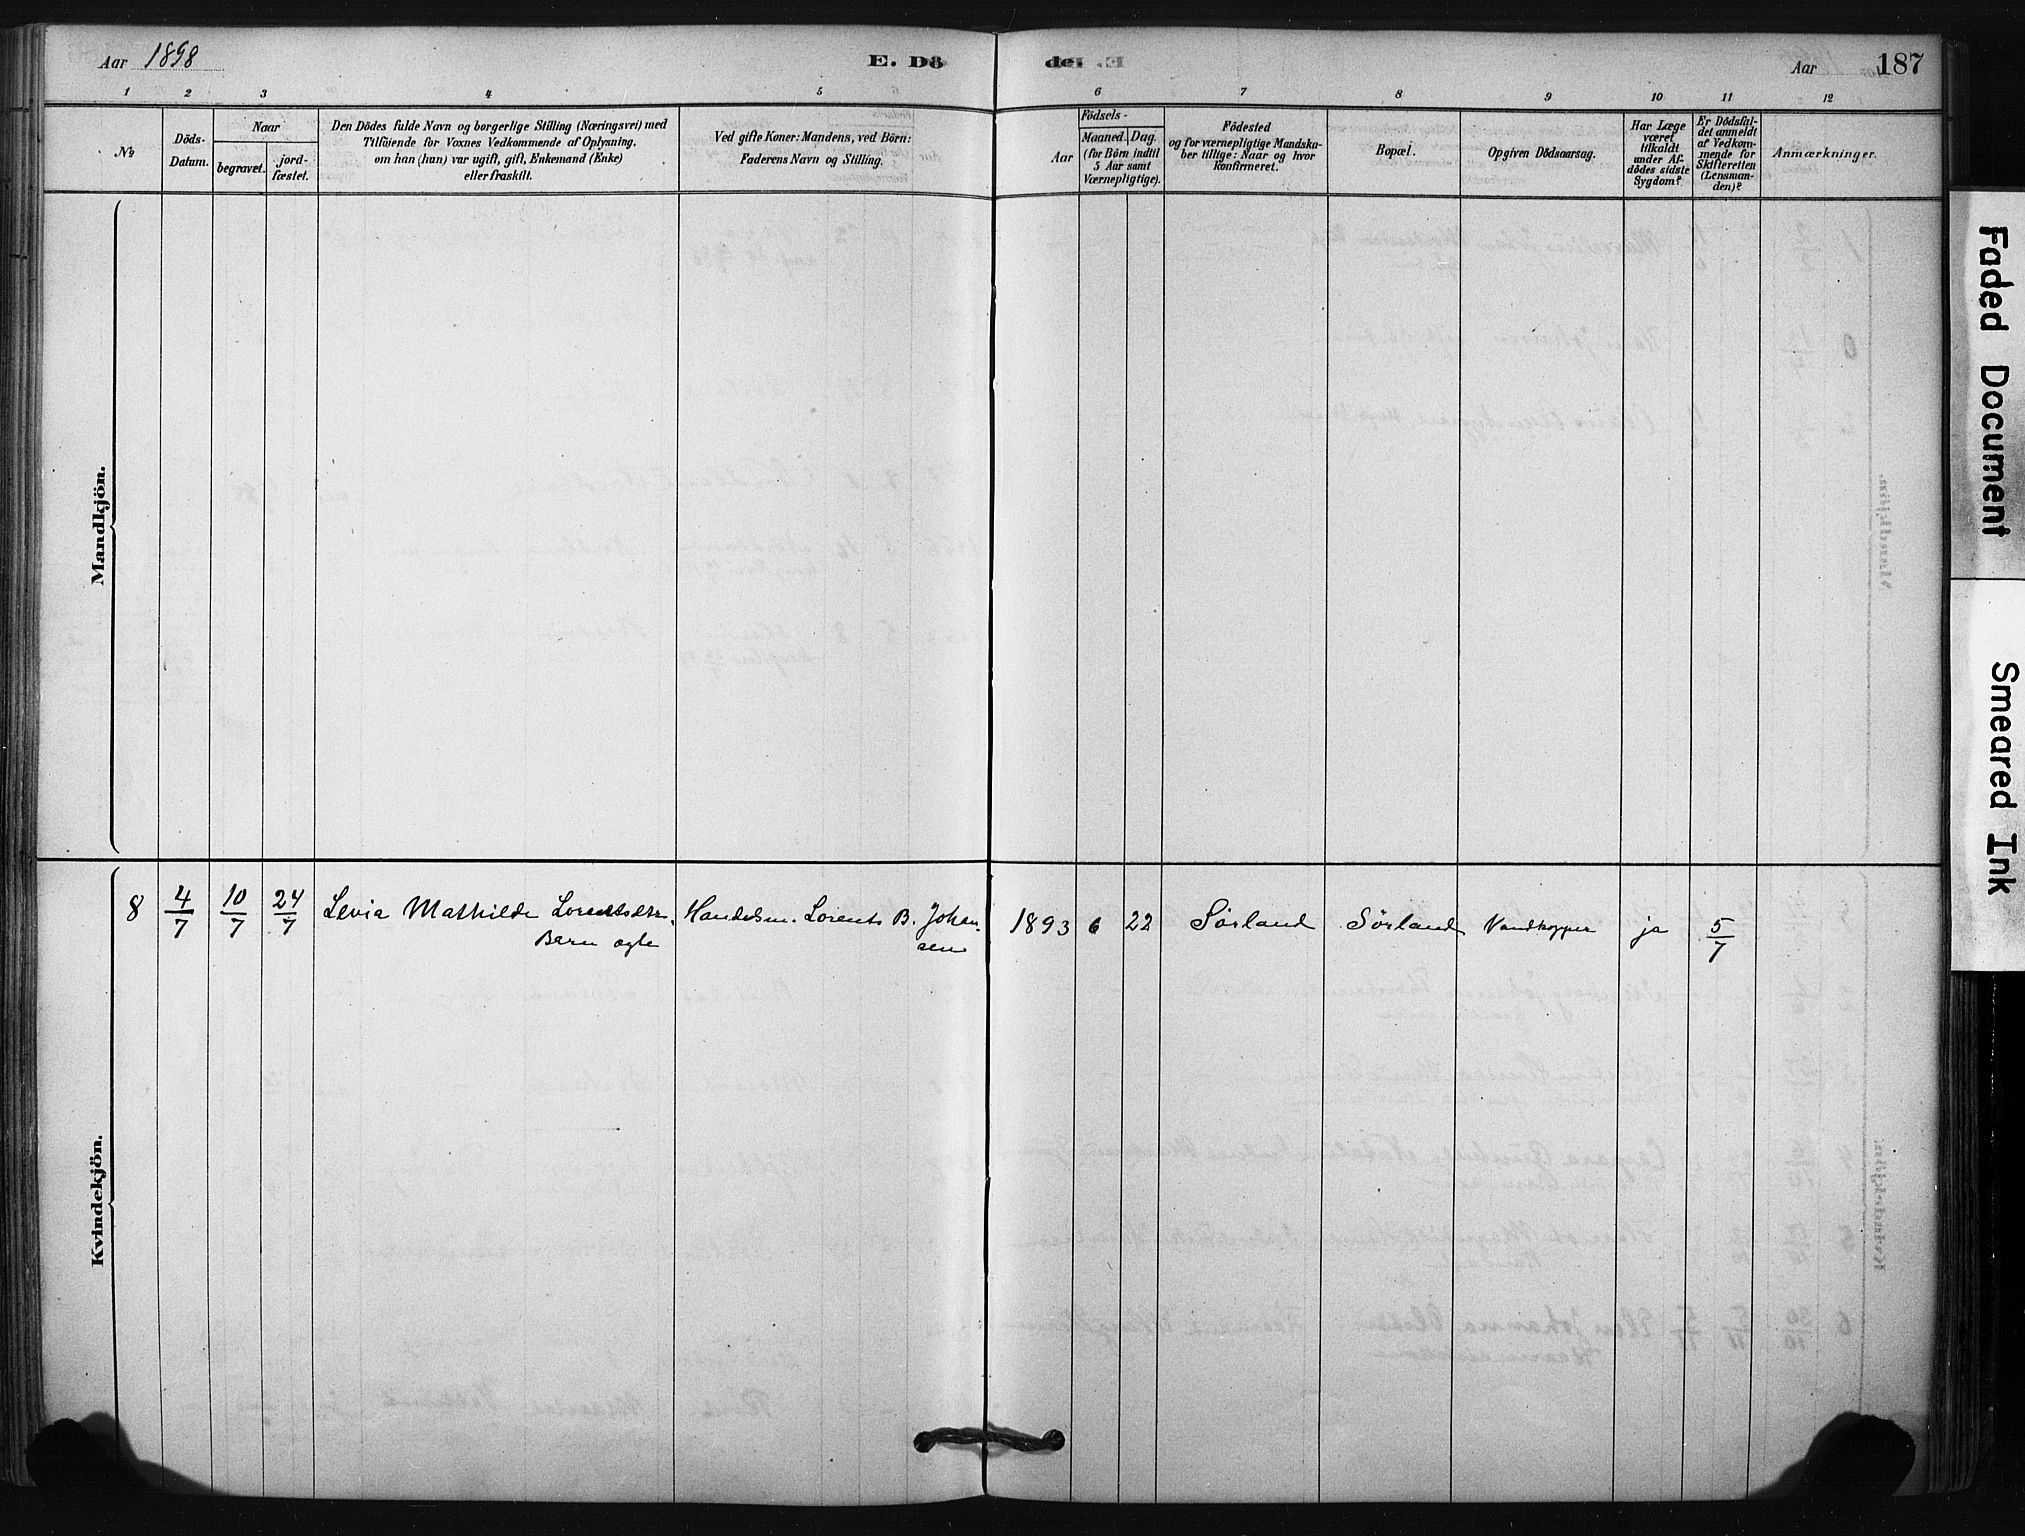 Aar 1898
E. Dö
de.
Aar
187
1 2 3 4 5 6 7 8 9 10 11 12
No.
Döds-
Datum.
Naar
begravet.
jord-
fæstet.
Den Dödes fulde Navn og borgerlige Stilling (Næringsvei) med
Tilföiende for Voxnes Vedkommende af Oplysning,
om han (hun) var ugift, gift, Enkemand (Enke)
eller fraskilt.
Ved gifte Koner: Mandens, ved Börn:
Faderens Navn og Stilling.
Födsels-
Aar
Maaned.
Dag.
(for Börn indtil
5 Aar samt
Værnepligtige).
Födested
og for værnepligtige Mandska-
ber tillige: Naar og hvor
Konfirmeret.
Bopæl.
Opgiven Dödsaarsag.
Har Læge
været
tilkaldt
under Af-
dödes sidste
Sygdom?
Er Dödsfal-
det anmeldt
af Vedkom-
mende for
Skifteretten
(Lensman-
den)?
Anmærkninger.
Mandkjön.
Kvindekjön.
8 4/7 10/7 24/7 Levia Mathilde Handelsm. Lorents B. Johan-
sen
Barn ægte
1893 6 22 Sørland Sørland Vandkopper ja 5/7
Faded Document
Smeared Ink